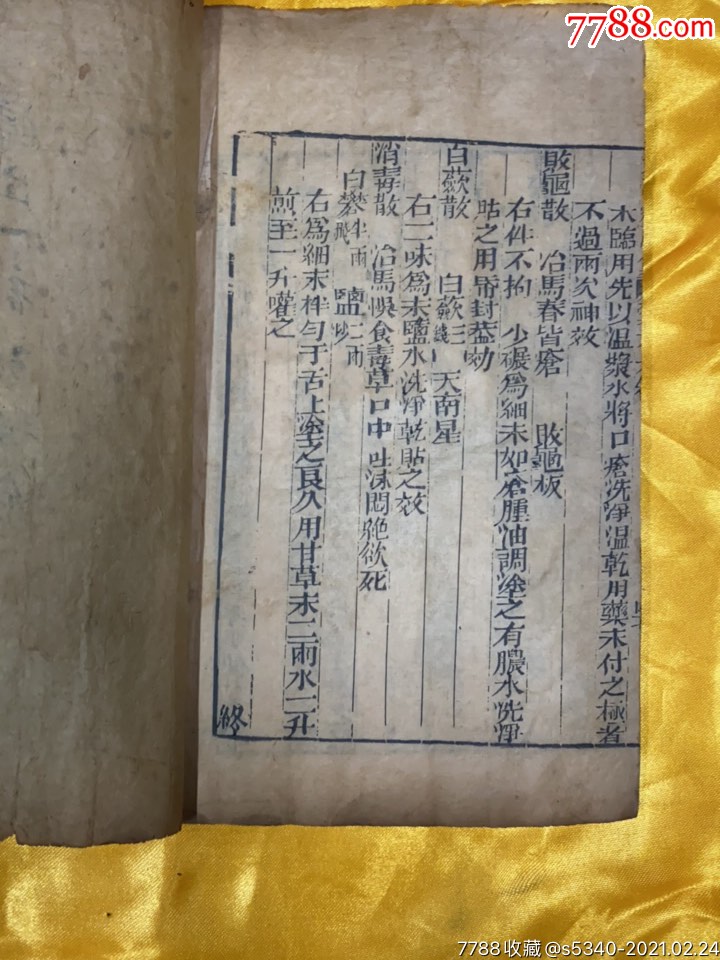 7788.com
末臨用先以温漿水將口瘡洗淨温乾用藥末付之極者
不過兩次神效
敗龜散 治馬春皆瘡 敗龜板
右件不拘 少碾爲細末如瘡腫油調塗之有膿水洗淨
咕之用帋封葢効
白蘞散 白蘞三錢 天南星
右二味爲末鹽水洗淨乾貼之效
消毒散 治馬悞食毒草口中吐沫悶绝欲死
白礬半兩飛 鹽二兩炒
右爲細末拌匀于舌上塗之良久用甘草末二兩水二升
煎至一升嚾之
終
7788收藏@s5340-2021.02.24